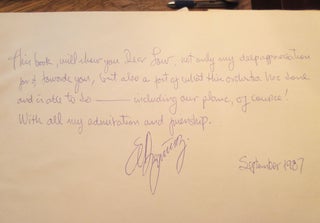 This book, will show you Dear Low, not only my deep appreciation
for & towards you, but also a part of what this orchestra has done
and is able to do ——— including our plans, of course!
With all my admiration and frienship.
September 1987